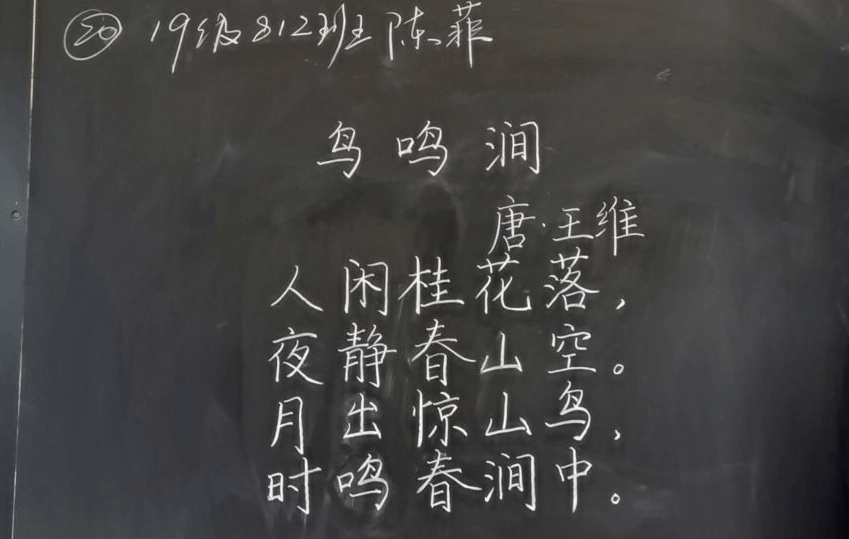 ⑳ 19级812班 陈菲
鸟鸣涧
唐·王维
人闲桂花落，
夜静春山空。
月出惊山鸟，
时鸣春涧中。